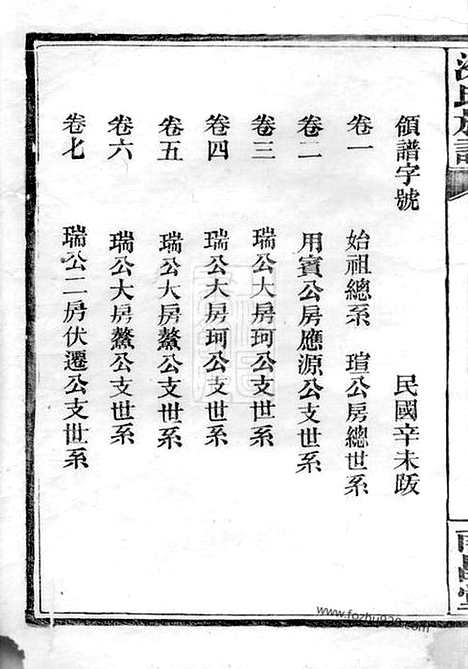 領譜字號 民國辛未䟦
卷一 始祖總系 瑄公房總世系
卷二 用賓公房應源公支世系
卷三 瑞公大房珂公支世系
卷四 瑞公大房珂公支世系
卷五 瑞公大房鰲公支世系
卷六 瑞公大房鰲公支世系
卷七 瑞公二房伏遷公支世系
www.fozhu920.com